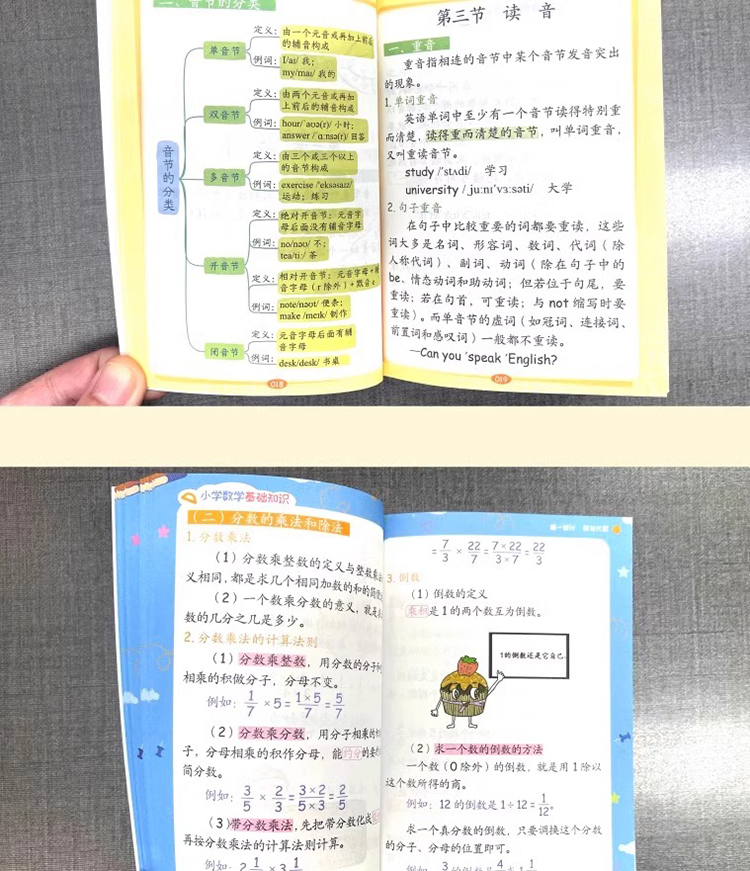 二、音节的分类
音节的分类
单音节
定义：由一个元音或再加上前后
的辅音构成
例词：I/aɪ/ 我；
my/maɪ/ 我的
双音节
定义：由两个元音或再加
上前后的辅音构成
例词：hour/ˈaʊə(r)/ 小时；
answer /ˈɑːnsə(r)/ 回答
多音节
定义：由三个或三个以上
的音节构成
例词：exercise /ˈeksəsaɪz/
运动；练习
开音节
定义：绝对开音节：元音字
母后面没有辅音字母
例词：no/nəʊ/ 不；
tea/tiː/ 茶
定义：相对开音节：元音字母+辅
音字母（r 除外）+ 默音 e
例词：note/nəʊt/ 便条；
make /meɪk/ 制作
闭音节
定义：元音字母后面有辅
音字母
例词：desk/desk/ 书桌
018
第三节 读 音
一、重音
重音指相连的音节中某个音节发音突出
的现象。
1. 单词重音
英语单词中至少有一个音节读得特别重
而清楚，读得重而清楚的音节，叫单词重音，
又叫重读音节。
study /ˈstʌdi/ 学习
university /ˌjuːnɪˈvɜːsəti/ 大学
2. 句子重音
在句子中比较重要的词都要重读，这些
词大多是名词、形容词、数词、代词（除
人称代词）、副词、动词（除在句子中的
be、情态动词和助动词；但若位于句尾，要
重读；若在句首，可重读；与 not 缩写时要
重读）。而单音节的虚词（如冠词、连接词、
前置词和感叹词）一般都不重读。
—Can you ˈspeak ˈEnglish?
019
小学数学基础知识
（二）分数的乘法和除法
1. 分数乘法
（1）分数乘整数的定义与整数乘法
义相同，都是求几个相同加数的和的简便
（2）一个数乘分数的意义，就是求
数的几分之几是多少。
2. 分数乘法的计算法则
（1）分数乘整数，用分数的分子和
相乘的积做分子，分母不变。
例如：1/7 ×5= 1×5/7 = 5/7
（2）分数乘分数，用分子相乘的积
子，分母相乘的积作分母，能约分的要约
简分数。
例如：3/5 × 2/3 = 3×2/5×3 = 2/5
（3）带分数乘法，先把带分数化成
再按分数乘法的计算法则计算。
例如：2 1/ × 3 1/
= 7/3 × 22/7 = 7×22/3×7 = 22/3
3. 倒数
（1）倒数的定义
乘积是 1 的两个数互为倒数。
1的倒数还是它自己。
（2）求一个数的倒数的方法
一个数（0 除外）的倒数，就是用 1 除以
这个数所得的商。
例如：12 的倒数是 1÷12= 1/12。
求一个真分数的倒数，只要调换这个分数
的分子、分母的位置即可。